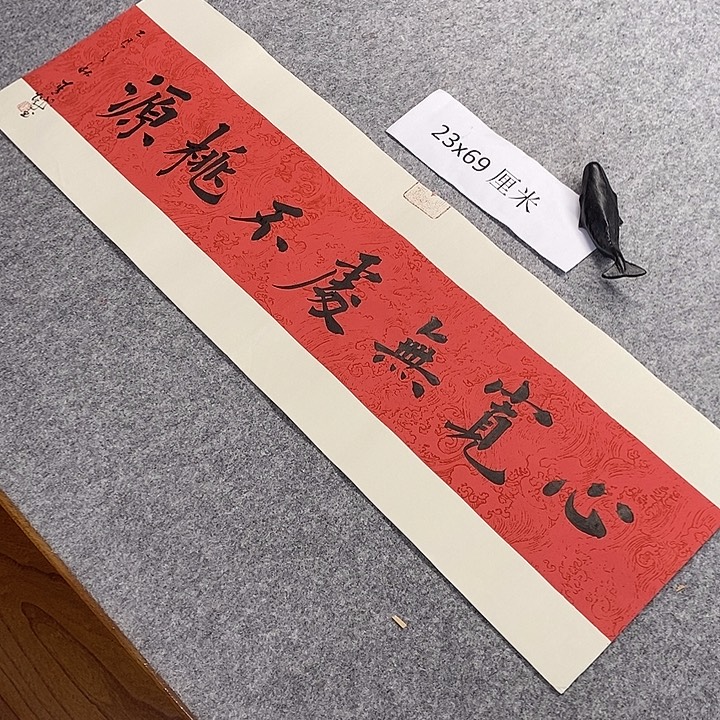 心寬無處不桃源
23x69 厘米